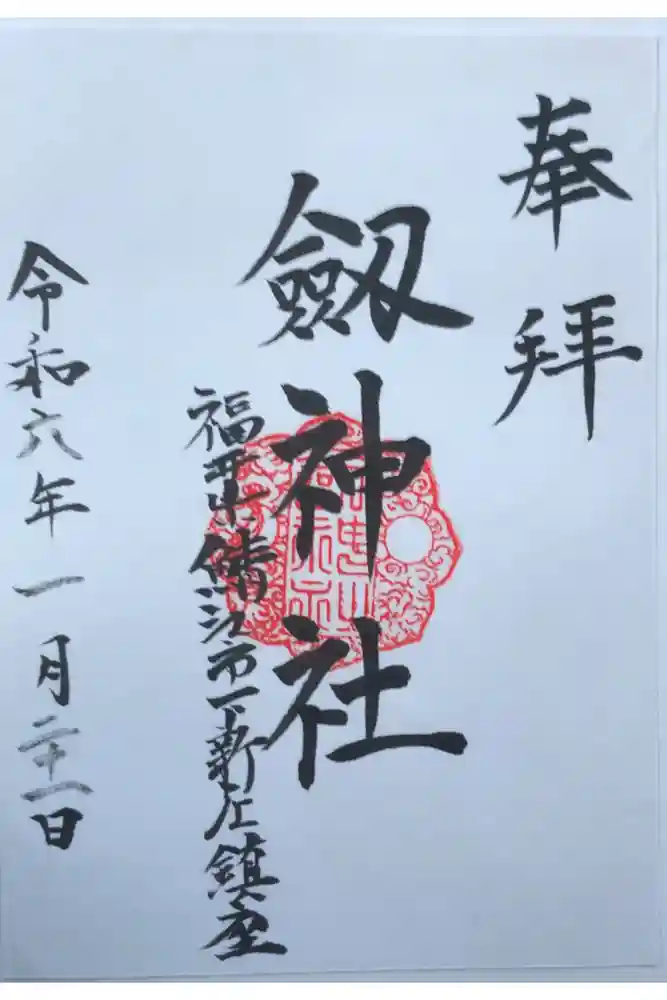 奉拝
劔神社
福井県鯖江市下新庄鎮座
令和六年一月二十一日